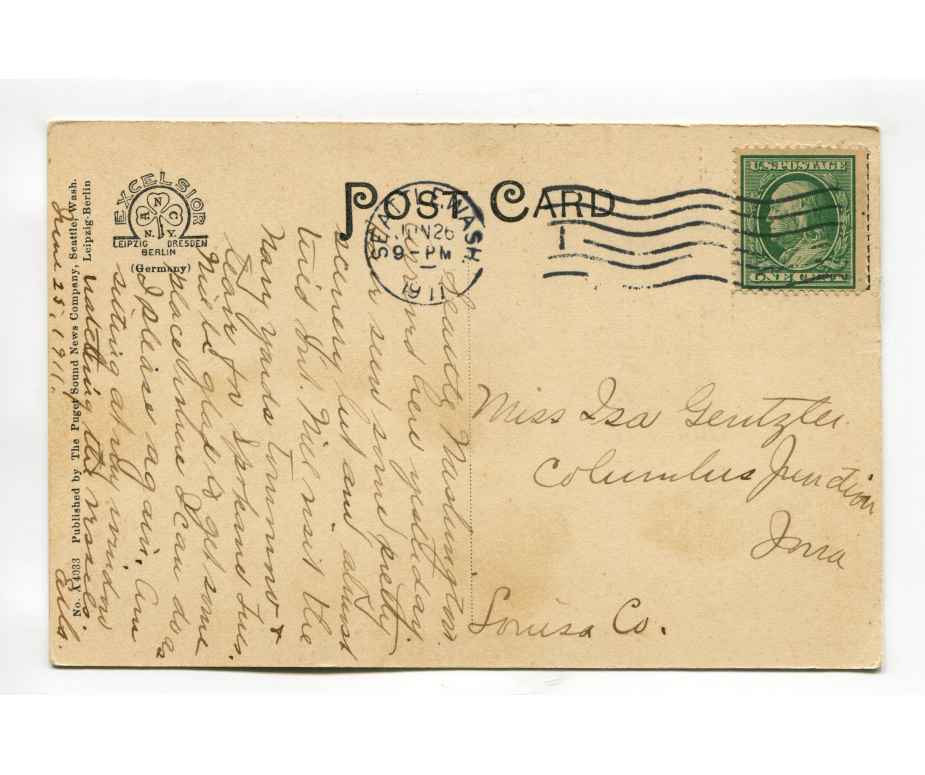 No. X4033 Published by The Puget Sound News Company, Seattle, Wash.
Leipzig-Berlin
EXCELSIOR
A.N.C.
N.Y.
LEIPZIG DRESDEN
BERLIN
(Germany)
POST CARD
SEATTLE, WASH.
JUN 26
9 - PM
1911
1
U.S. POSTAGE
ONE CENT
Seattle Washington
here yesterday.
seen some pretty
scenery but am almost
tired out. Will visit the
Navy yards tomorrow &
leave for Spokane Tues.
Will be glad to get some
place where I can do as
I please again. Am
sitting at my window
watching the vessels.
June 25, 1911.
Miss Isa Gentzler
Columbus Junction
Iowa
Louisa Co.